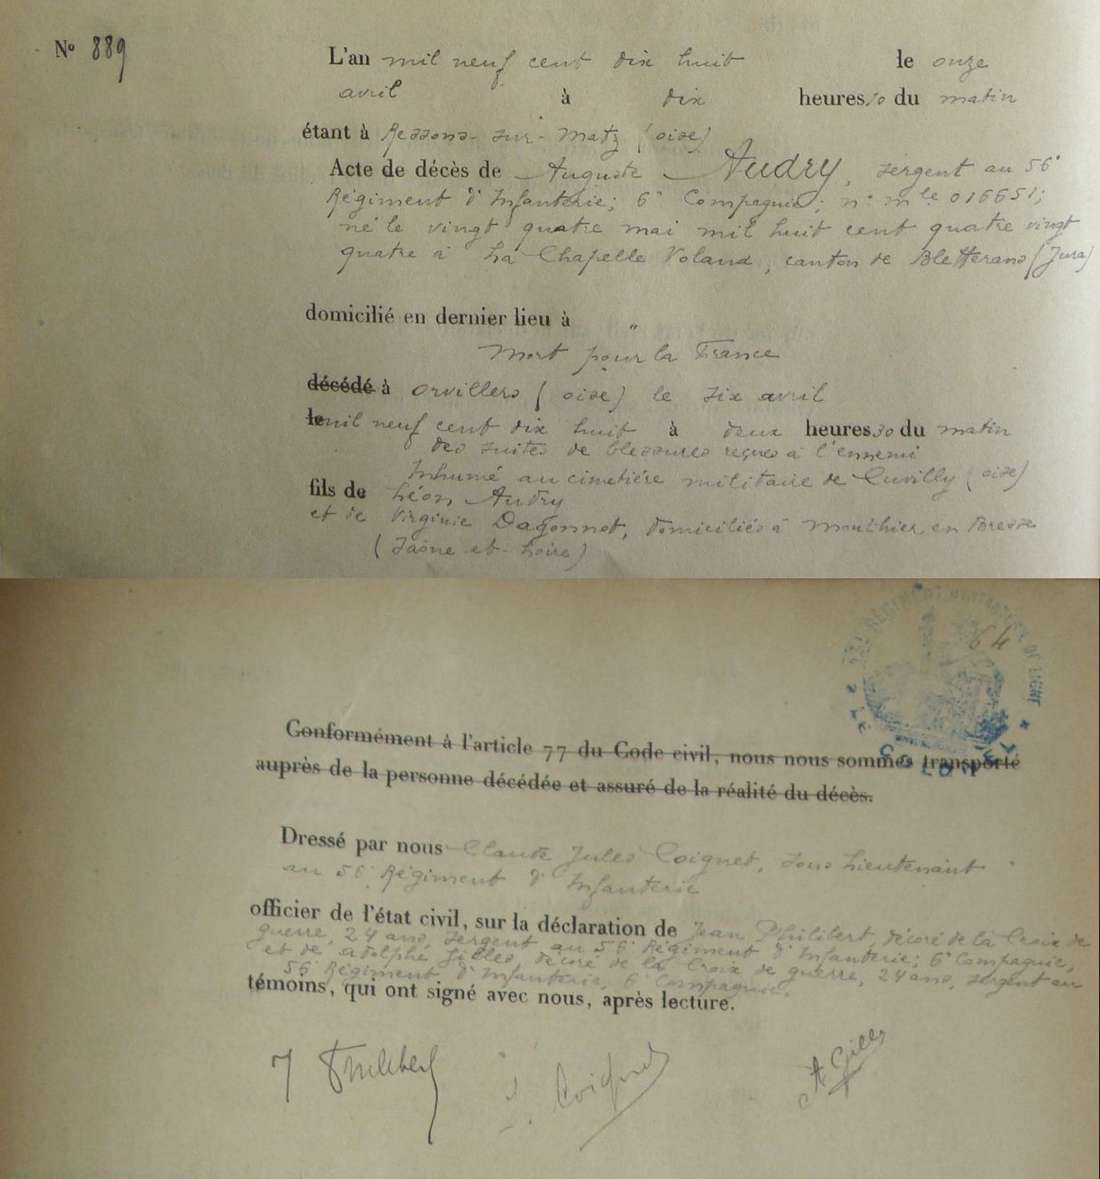 N° 889
L'an mil neuf cent dix huit le onze
avril à dix heures 30 du matin
étant à Ressons-sur-Matz (oise)
Acte de décès de Auguste Audry, sergent au 56e
Régiment d'Infanterie; 6e Compagnie; n° mle 016651;
né le vingt quatre mai mil huit cent quatre vingt
quatre à La Chapelle Voland, canton de Bletterans (Jura)
domicilié en dernier lieu à "
Mort pour la France
décédé à orvillers (oise) le six avril
le mil neuf cent dix huit à deux heures 30 du matin
des suites de blessures reçues à l'ennemi
Inhumé au cimetière militaire de Cuvilly (oise)
fils de Léon Audry
et de Virginie Dagonnot, domiciliés à Mouthier en Bresse
(Saône-et-Loire)
64
Conformément à l'article 77 du Code civil, nous nous sommes transporté
auprès de la personne décédée et assuré de la réalité du décès.
Dressé par nous Claude Jules Coignet, sous Lieutenant
au 56e Régiment d'Infanterie
officier de l'état civil, sur la déclaration de Jean Philibert, décoré de la Croix de
guerre, 24 ans, sergent au 56e Régiment d'Infanterie; 6e Compagnie,
et de Adolphe Gilles, décoré de la Croix de guerre, 24 ans, sergent au
56e Régiment d'Infanterie, 6e Compagnie.
témoins, qui ont signé avec nous, après lecture.
J Philibert J. Coignet A Gilles